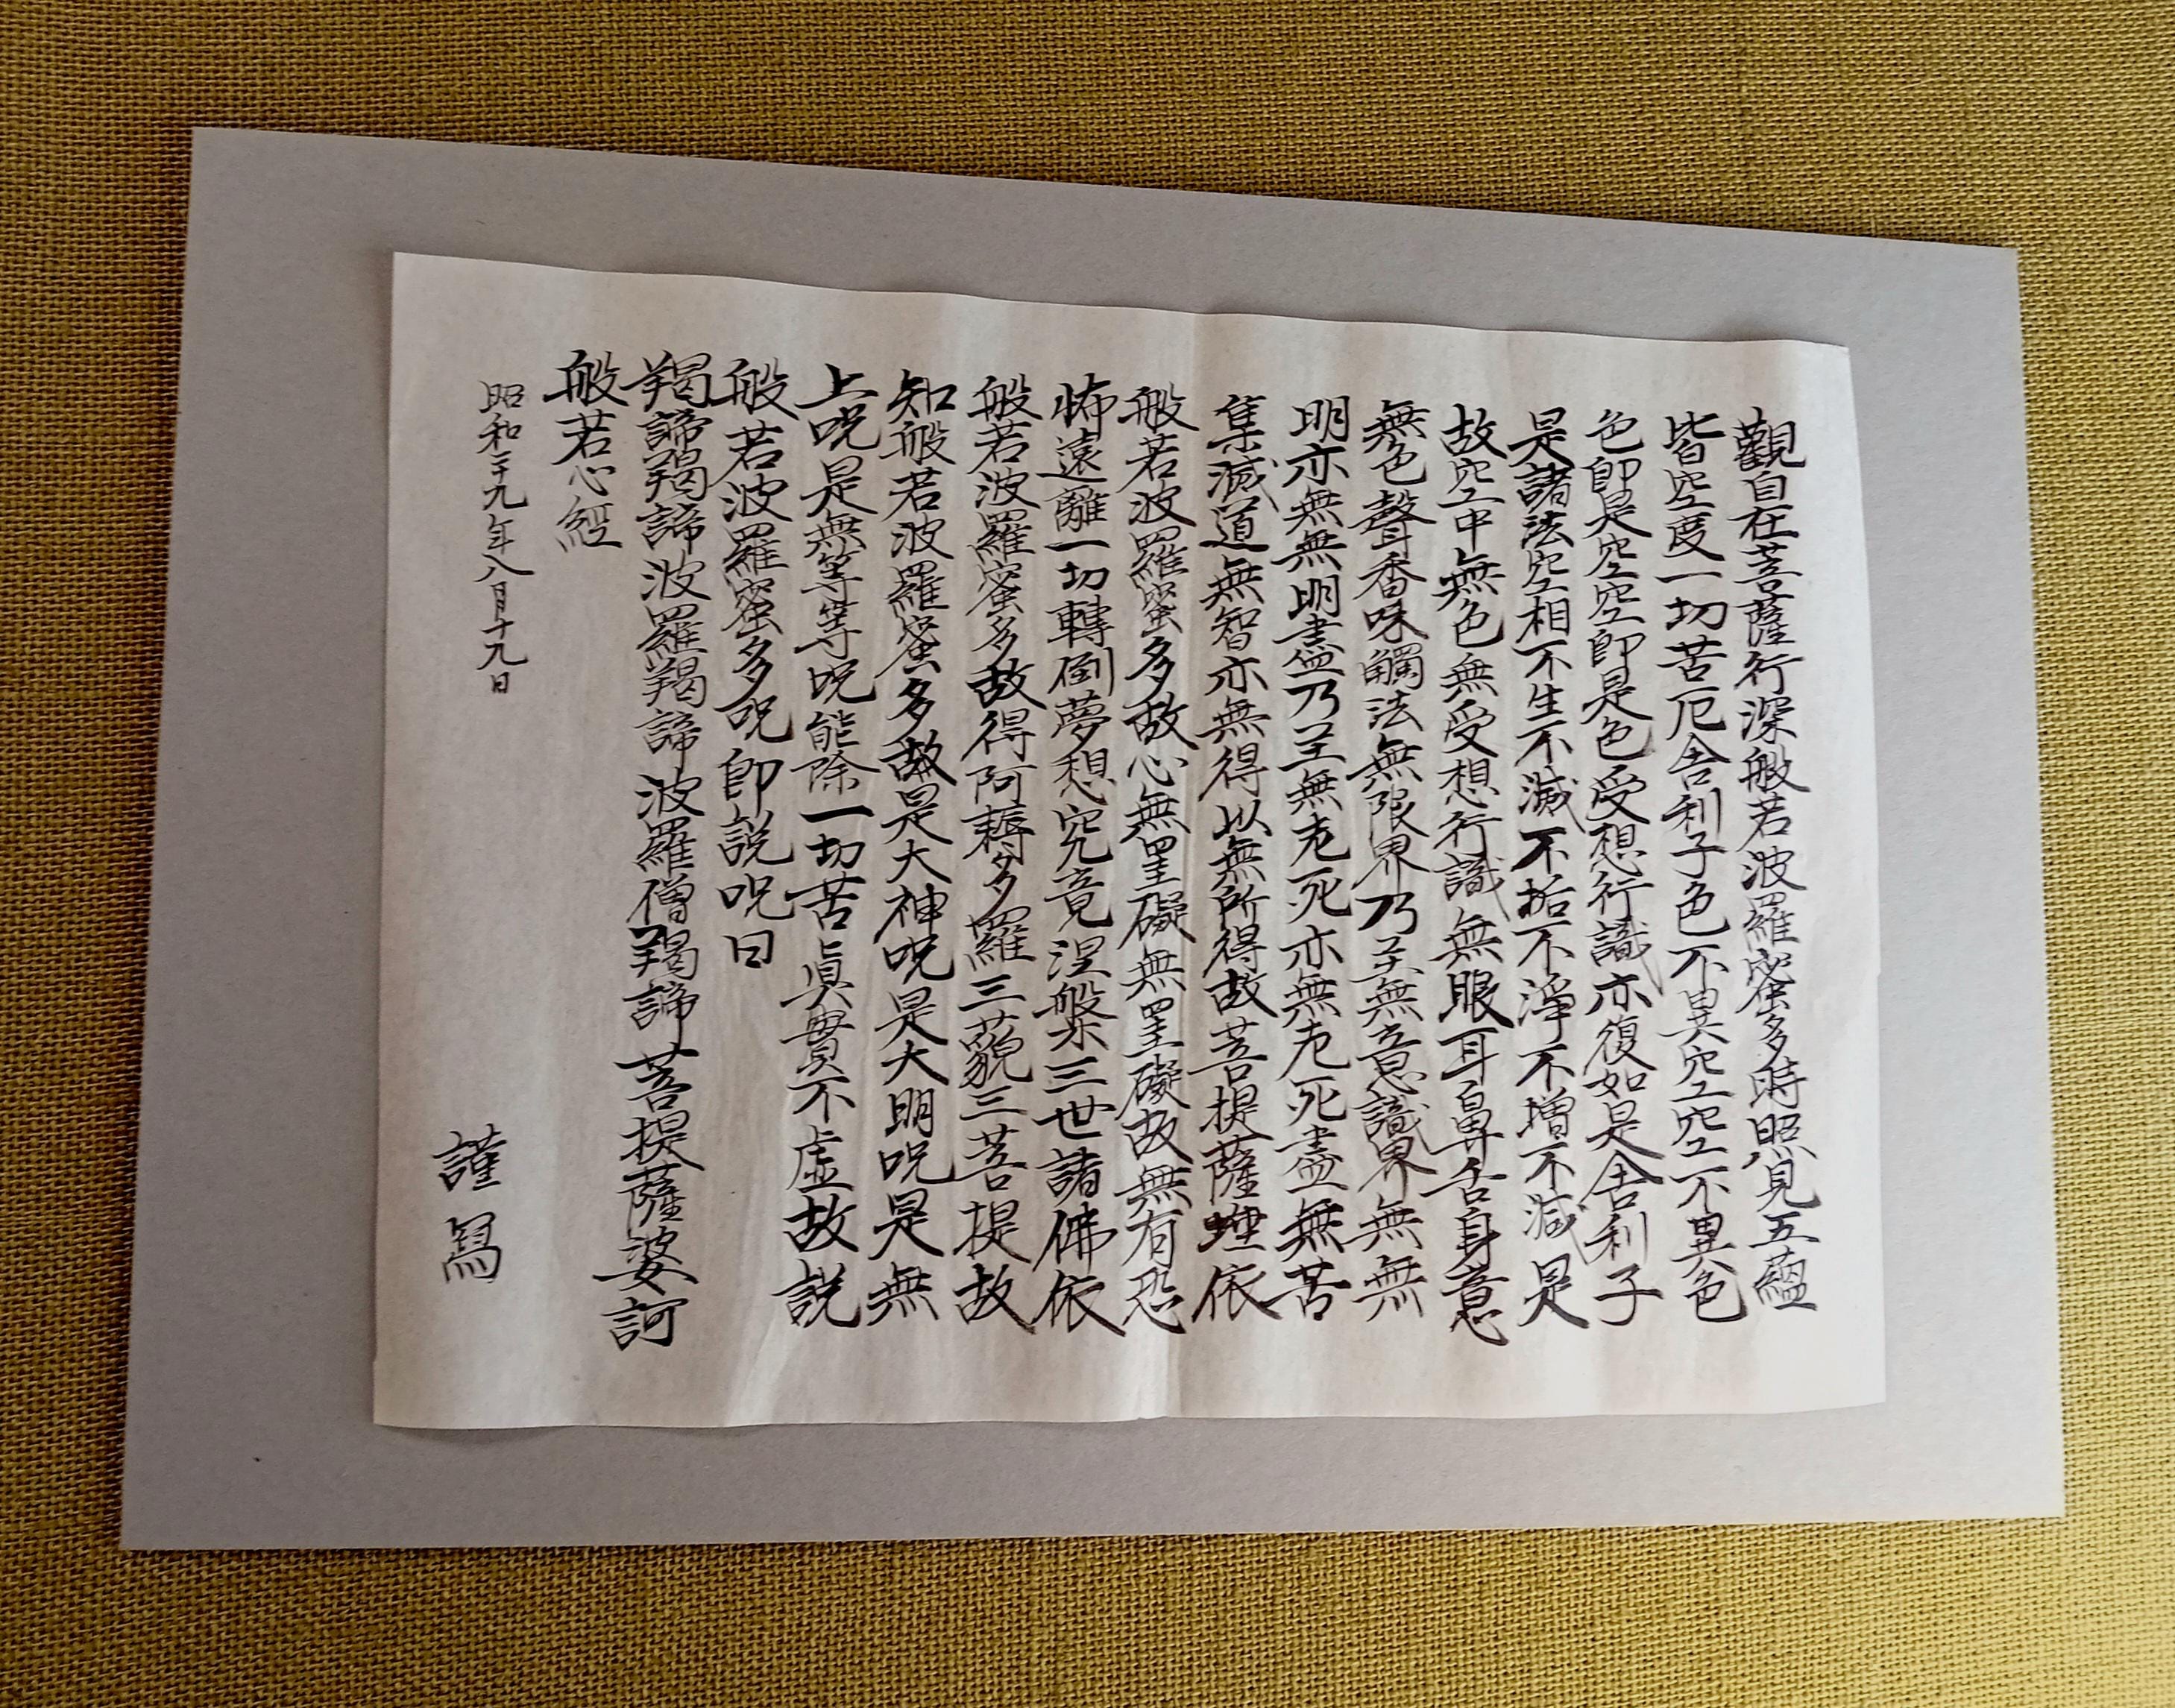 觀自在菩薩行深般若波羅蜜多時照見五蘊
皆空度一切苦厄舎利子色不異空空不異色
色即是空空即是色受想行識亦復如是舎利子
是諸法空相不生不滅不垢不淨不増不減是
故空中無色無受想行識無眼耳鼻舌身意
無色聲香味觸法無限界乃至無意識界無無
明亦無無明盡乃至無老死亦無老死盡無苦
集滅道無智亦無得以無所得故菩提薩埵依
般若波羅蜜多故心無罣礙無罣礙故無有恐
怖遠離一切轉倒夢想究竟涅槃三世諸佛依
般若波羅蜜多故得阿耨多羅三藐三菩提故
知般若波羅蜜多故是大神呪是大明呪是無
上呪是無等等呪能除一切苦眞實不虛故説
般若波羅蜜多呪即説呪曰
羯諦羯諦波羅羯諦波羅僧羯諦菩提薩婆訶
般若心経
昭和二十九年八月十九日
謹寫